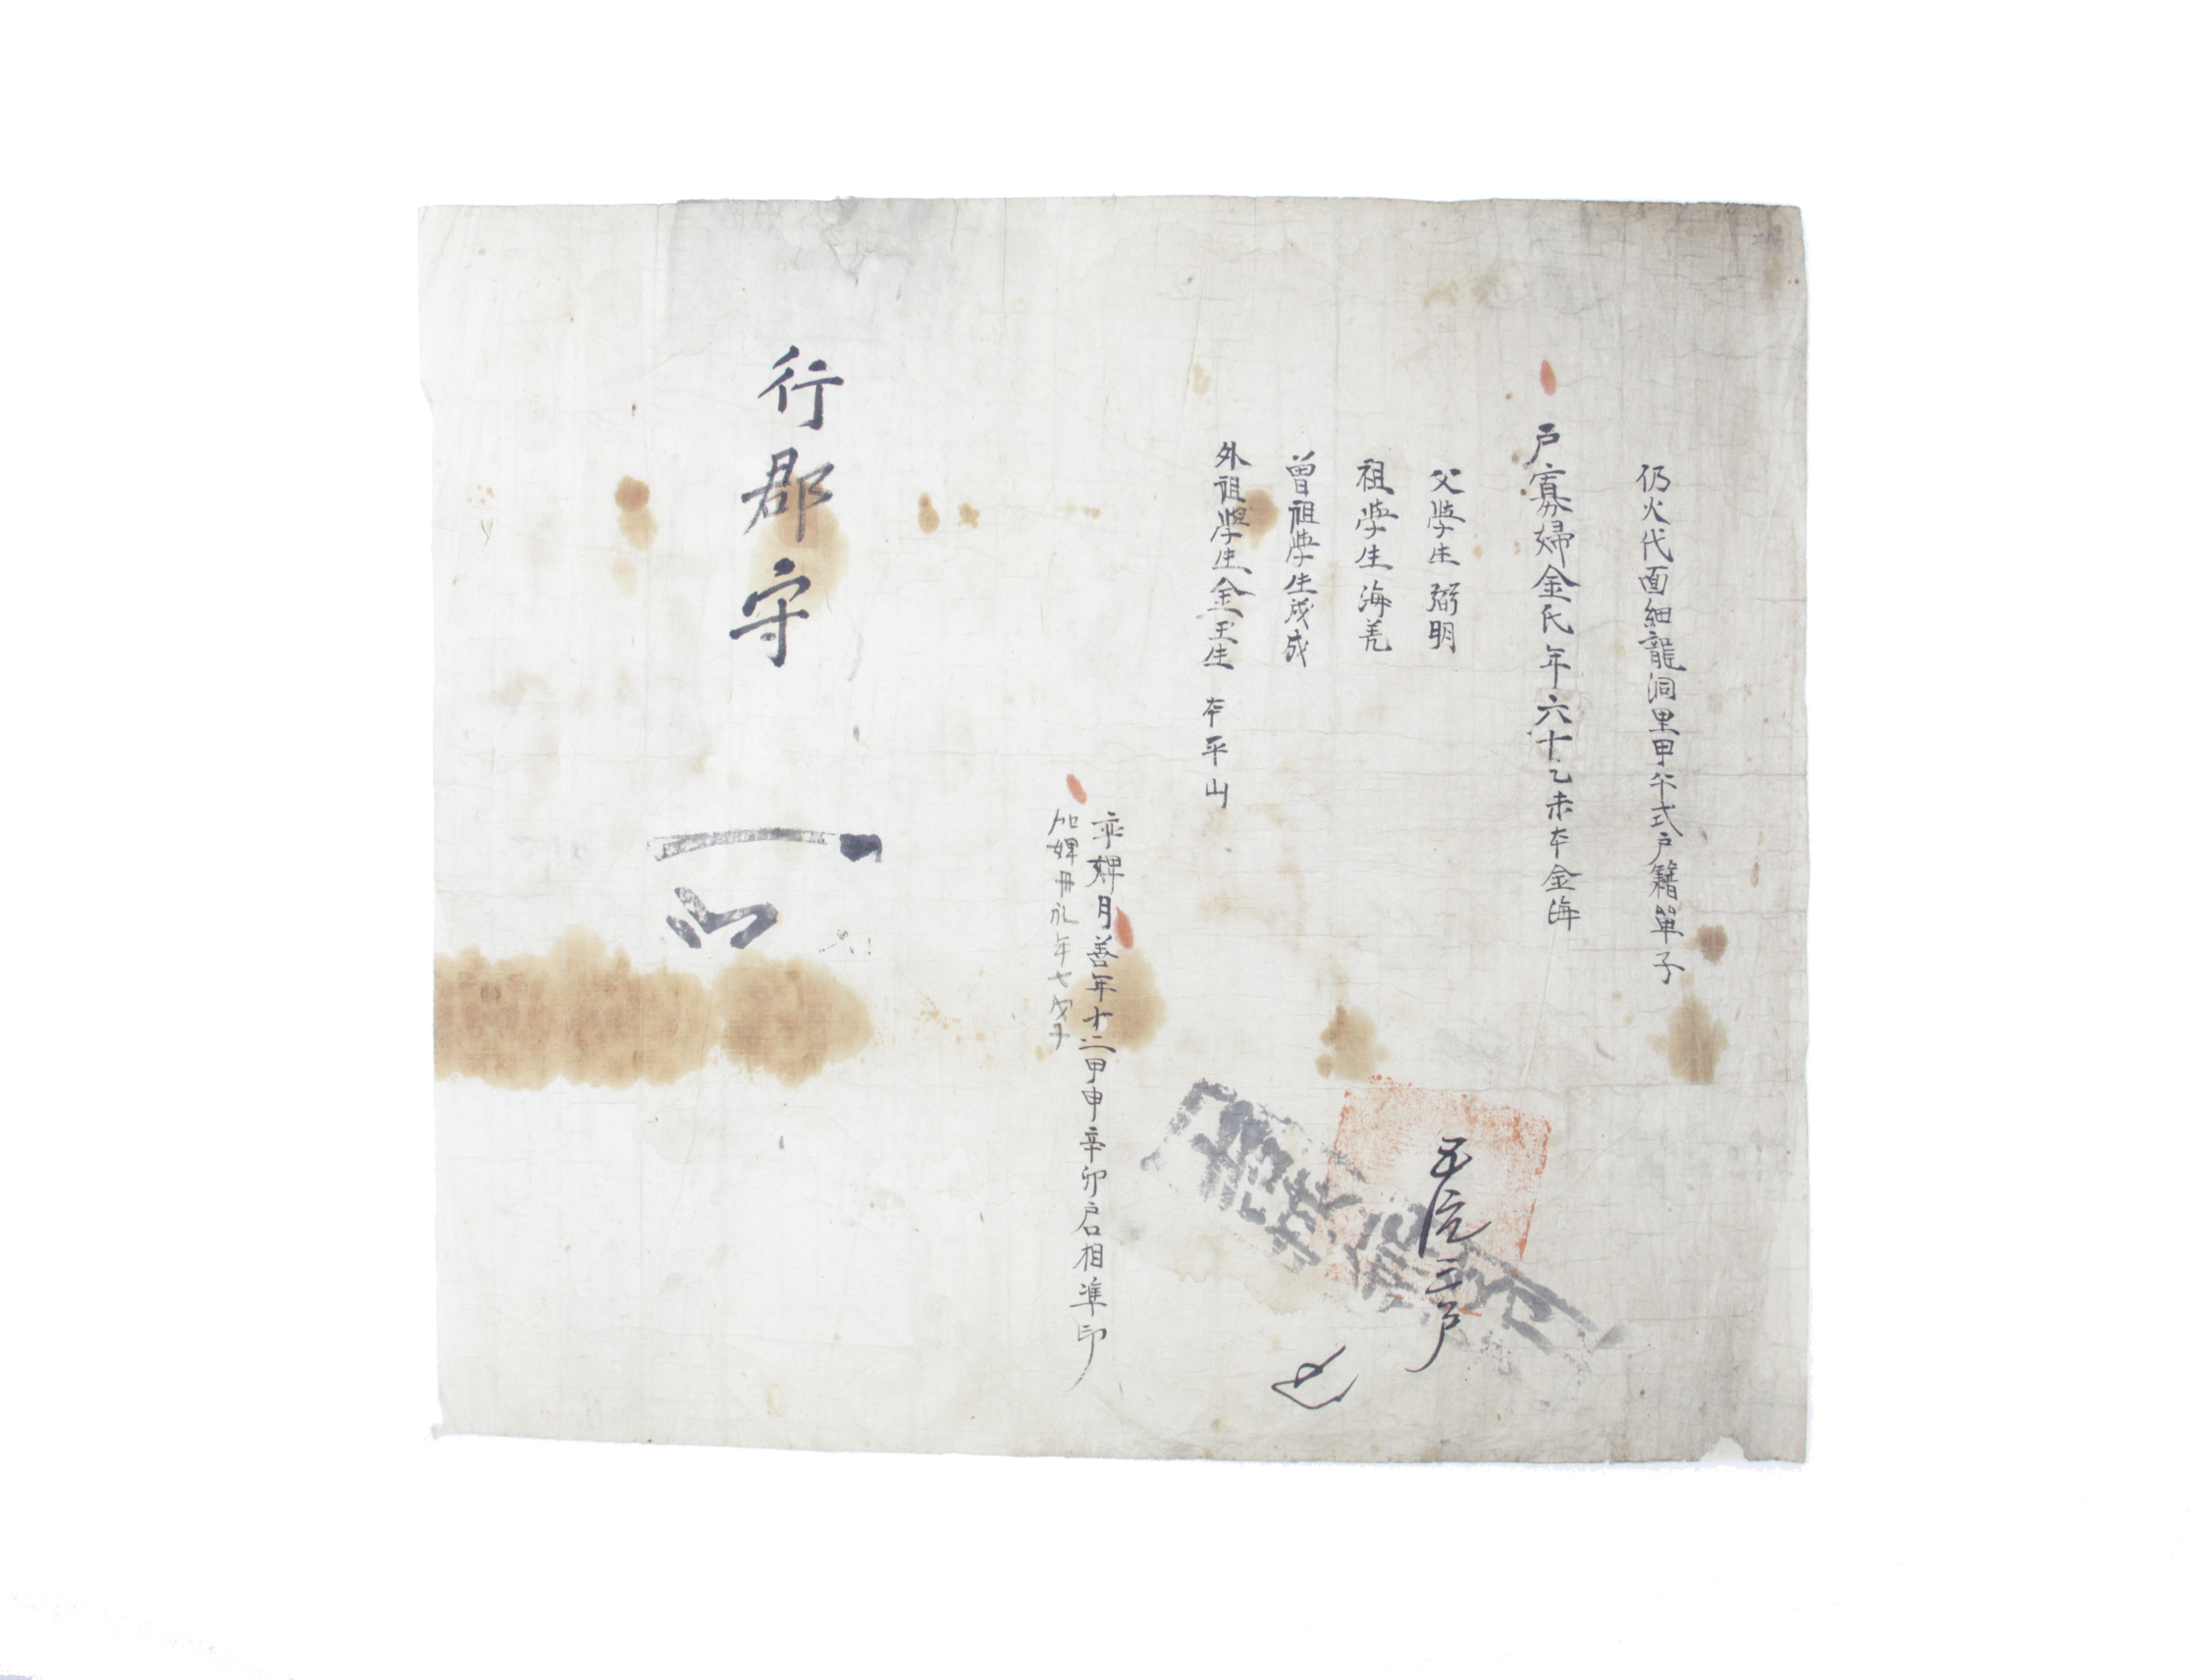 仍火代面細龍洞里甲午式戶籍單子
戶寡婦金氏年六十乙未本金海
父學生弼明
祖學生海先
曾祖學生成
外祖學生金玉生 本平山
率婢月善年十二甲申辛卯戶口相準印
加婢丹礼年七戊子
統三戶
行郡守